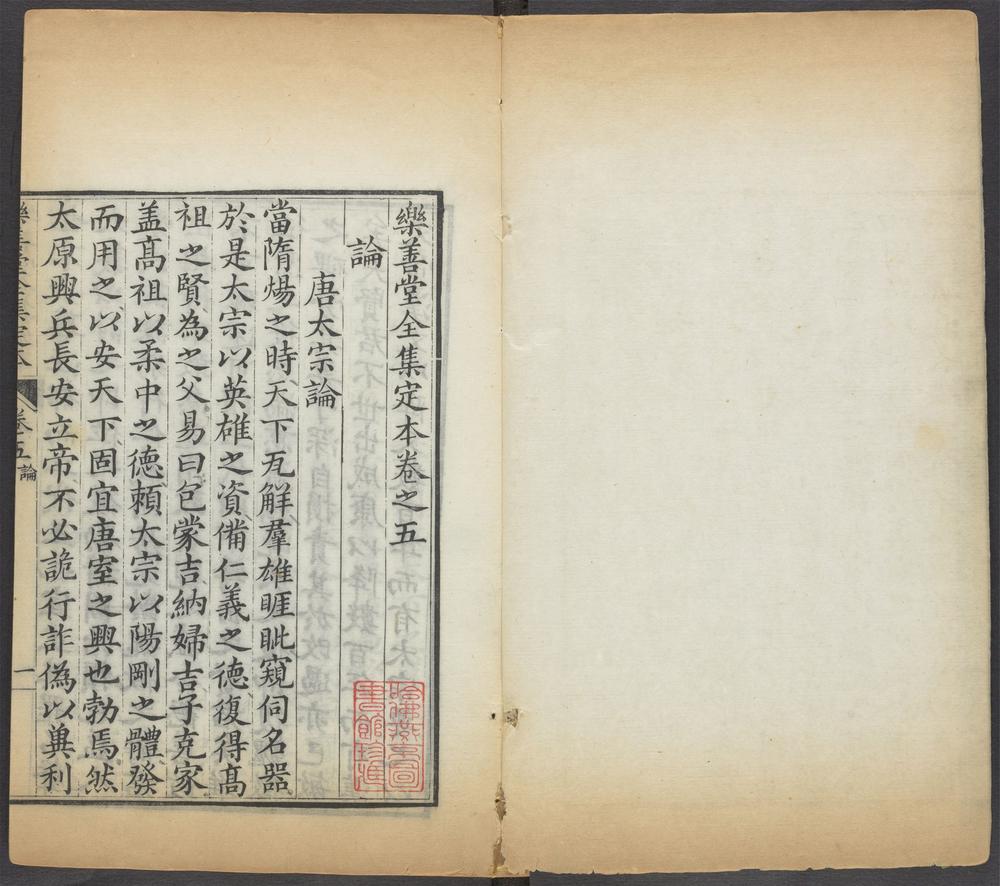 樂善堂全集定本卷之五
論
唐太宗論
當隋煬之時天下瓦解羣雄睚眦窺伺名器
於是太宗以英雄之資備仁義之德復得髙
祖之賢為之父易曰包蒙吉納婦吉子克家
盖髙祖以柔中之德頼太宗以陽剛之體發
而用之以安天下固宜唐室之興也勃焉然
太原興兵長安立帝不必詭行詐偽以兾利
樂善堂全集定本 卷五 論 一
哈佛燕京圖書館珍藏